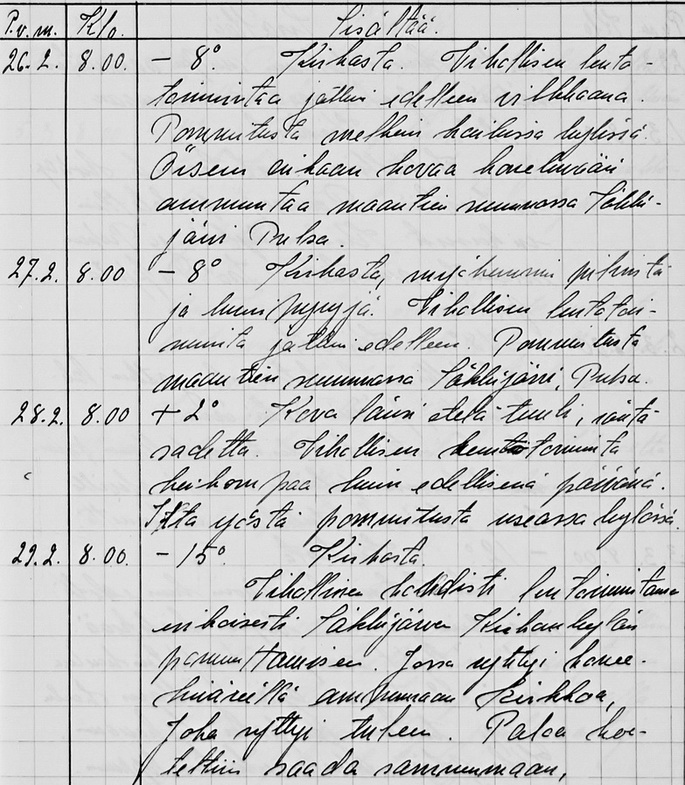 P.v.m. Klo. Sisältää.
26.2. 8.00. - 8° Kirkasta. Vihollisen lento-
toimintaa jatkui edelleen vilkkaana.
Pommitusta melkein kaikissa kylissä.
Öisein aikaan kovaa konekivääri
ammuntaa maantien suunnassa Säkki-
järvi Pulsa.
27.2. 8.00 - 8° Kirkasta, myöhemmin pilvistä
ja lumi pyryjä. Vihollisen lentotoi-
minta jatkui edelleen. Pommitusta
maantien suunnassa Säkkijärvi, Pulsa.
28.2. 8.00 + 2° Kova länsi etelä tuuli, räntä
sadetta. Vihollisen lentotoiminta
heikompaa kuin edellisenä päivänä.
Ilta yöstä pommitusta useassa kylässä.
29.2. 8.00. - 15° Kirkasta.
Vihollinen kohdisti
erikoisesti Säkkijärven Kirkonkylän
pommittamiseen. Jossa syttyi konee-
kivääreillä ammumaan kirkkoa,
Joka syttyi tuleen. Paloa koe-
tettiin saada sammumaan,